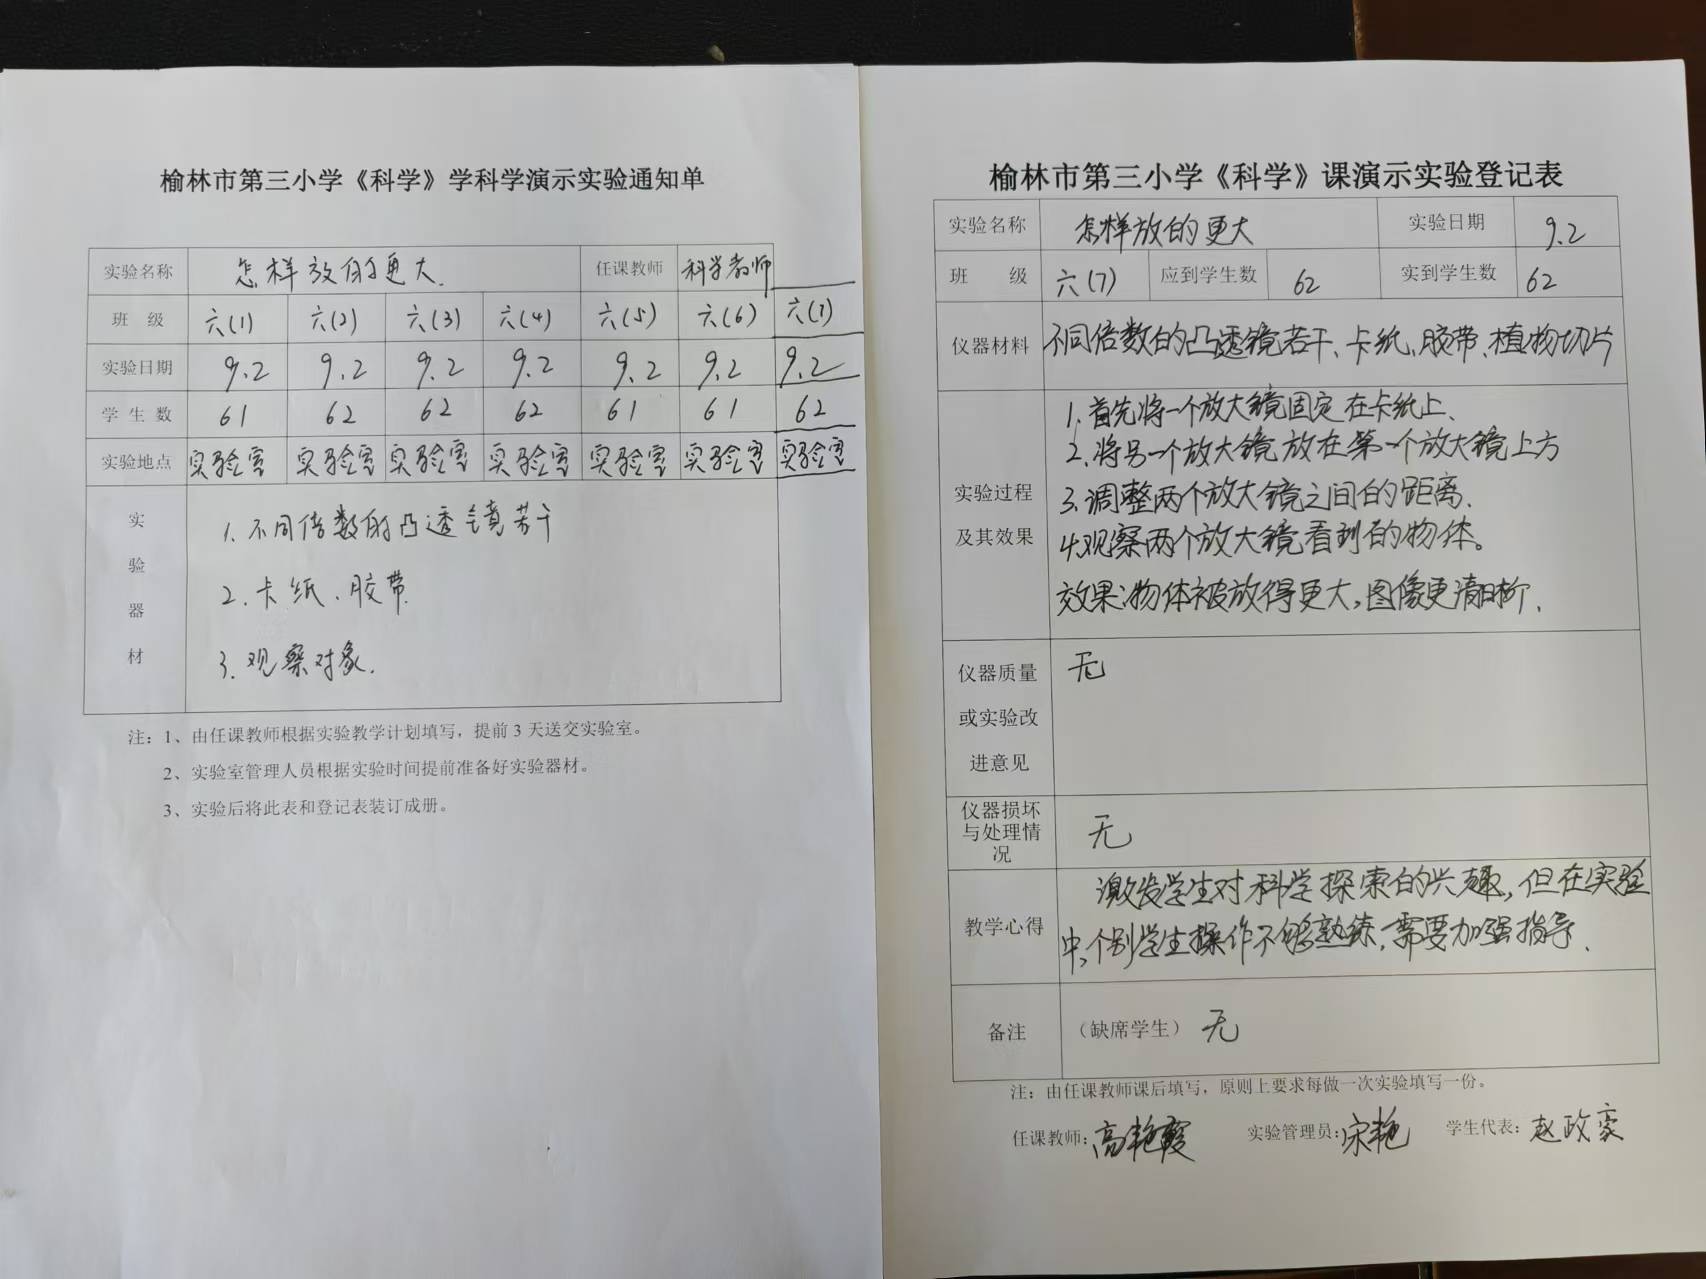 榆林市第三小学《科学》学科学演示实验通知单
实验名称 怎样放的更大. 任课教师 科学教师
班 级 六(1) 六(2) 六(3) 六(4) 六(5) 六(6) 六(7)
实验日期 9.2 9.2 9.2 9.2 9.2 9.2 9.2
学 生 数 61 62 62 62 61 61 62
实验地点 实验室 实验室 实验室 实验室 实验室 实验室 实验室
实验器材
1. 不同倍数的凸透镜若干
2. 卡纸、胶带.
3. 观察对象.
注：1、由任课教师根据实验教学计划填写，提前 3 天送交实验室。
2、实验室管理人员根据实验时间提前准备好实验器材。
3、实验后将此表和登记表装订成册。
榆林市第三小学《科学》课演示实验登记表
实验名称 怎样放的更大 实验日期 9.2
班 级 六(7) 应到学生数 62 实到学生数 62
仪器材料 不同倍数的凸透镜若干、卡纸、胶带、植物切片
实验过程及其效果
1. 首先将一个放大镜固定在卡纸上.
2. 将另一个放大镜放在第一个放大镜上方
3. 调整两个放大镜之间的距离.
4. 观察两个放大镜看到的物体。
效果:物体被放得更大,图像更清晰.
仪器质量或实验改进意见 无
仪器损坏与处理情况 无
教学心得 激发学生对科学探索的兴趣,但在实验
中,个别学生操作不够熟练,需要加强指导.
备注 （缺席学生） 无
注：由任课教师课后填写，原则上要求每做一次实验填写一份。
任课教师: 高艳霞 实验管理员: 宋艳 学生代表: 赵政豪